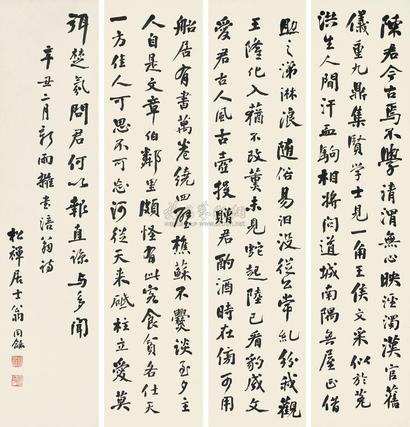 陳君今古焉不學清渭無心映涇濁漢官舊
儀重九鼎集賢學士見一角王侯文采似於菟
洪生人間汗血駒相將問道城南隅無屋正借
照之涕淋浪隨俗易汩沒從公常糾紛我觀
王隆化入蕕不改薰未見蛇起陸已看豹成文
愛君古人風古壺投贈君酌酒時在傍可用
船居有書萬卷繞四壁樵蘇不爨談至夕主
人自是文章伯鄰里頗怪有此客食貧各仕天
一方佳人可思不可忘河從天來砥柱立愛莫
弭楚氛問君何以報直諒與多聞
辛丑二月新雨書涪翁詩
松禪居士翁同龢